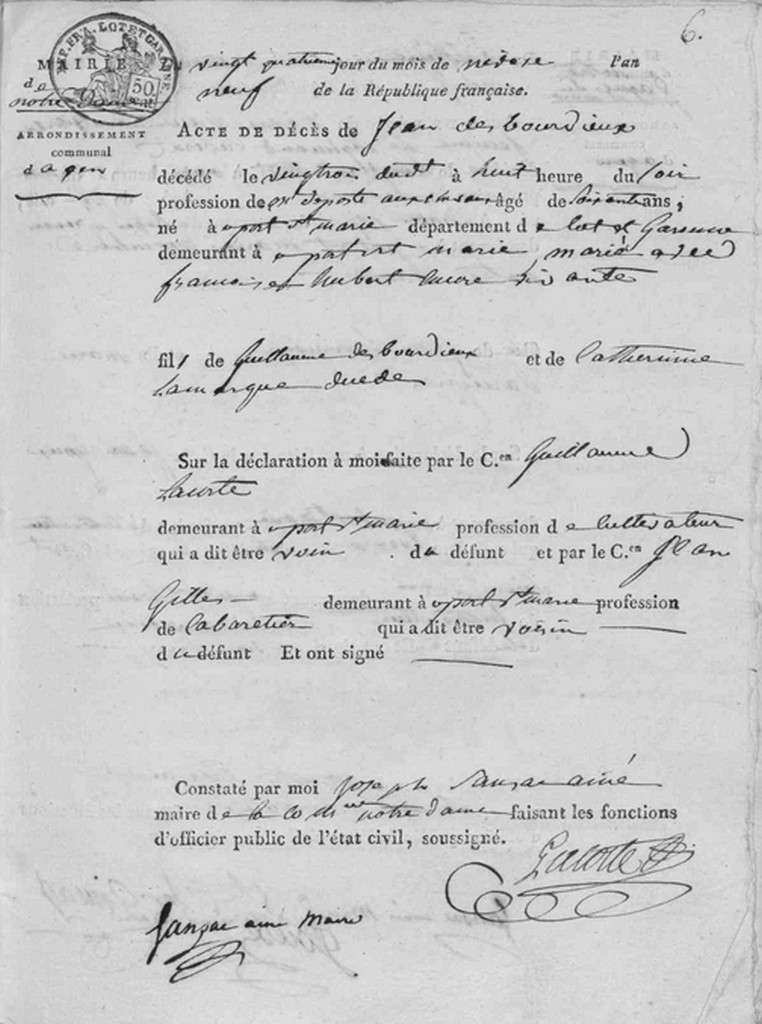 6.
REP. FRA. LOT ET GARONNE.
50
MAIRIE
de
notre Dame
ARRONDISSEMENT
communal
d agen
Du vingt quatrieme jour du mois de nivose l'an
neuf de la République française.
ACTE DE DÉCÈS de Jean desbourdieux
décédé le vingtrois dudt à huit heure du soir
profession de mt de poste aux âgé de soixante ans,
né à port ste marie département de lot et Garonne
demeurant à port marie, marié avec
francoise hubert vivante
fils de Guillaume desbourdieux et de Catherinne
Lamarque
Sur la déclaration à moi faite par le C.en Guillaume
Lacoste
demeurant à port ste marie profession de cultivateur
qui a dit être voisin du défunt et par le C.en Jean
Gilles demeurant à port ste marie profession
de Cabaretier qui a dit être voisin
du défunt Et ont signé
Constaté par moi Joseph Sansac ainé
maire de la comune notre dame faisant les fonctions
d'officier public de l'état civil, soussigné.
Lacoste
Sansac ainé maire